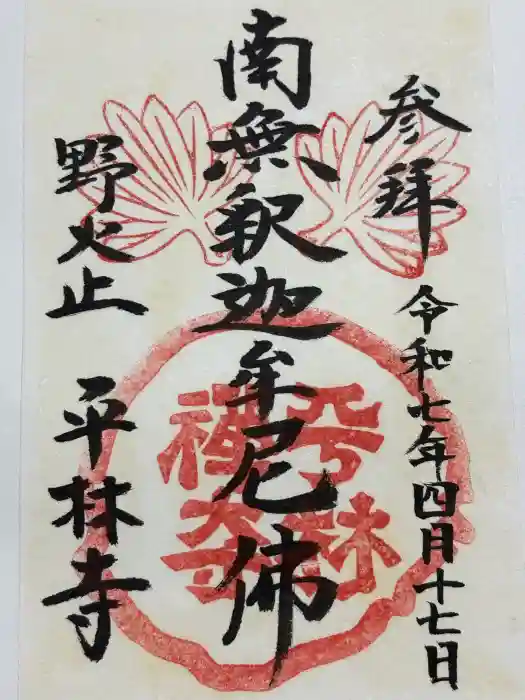 参拝
令和七年四月十七日
南無釈迦牟尼佛
野火止
平林寺
平林
禅寺